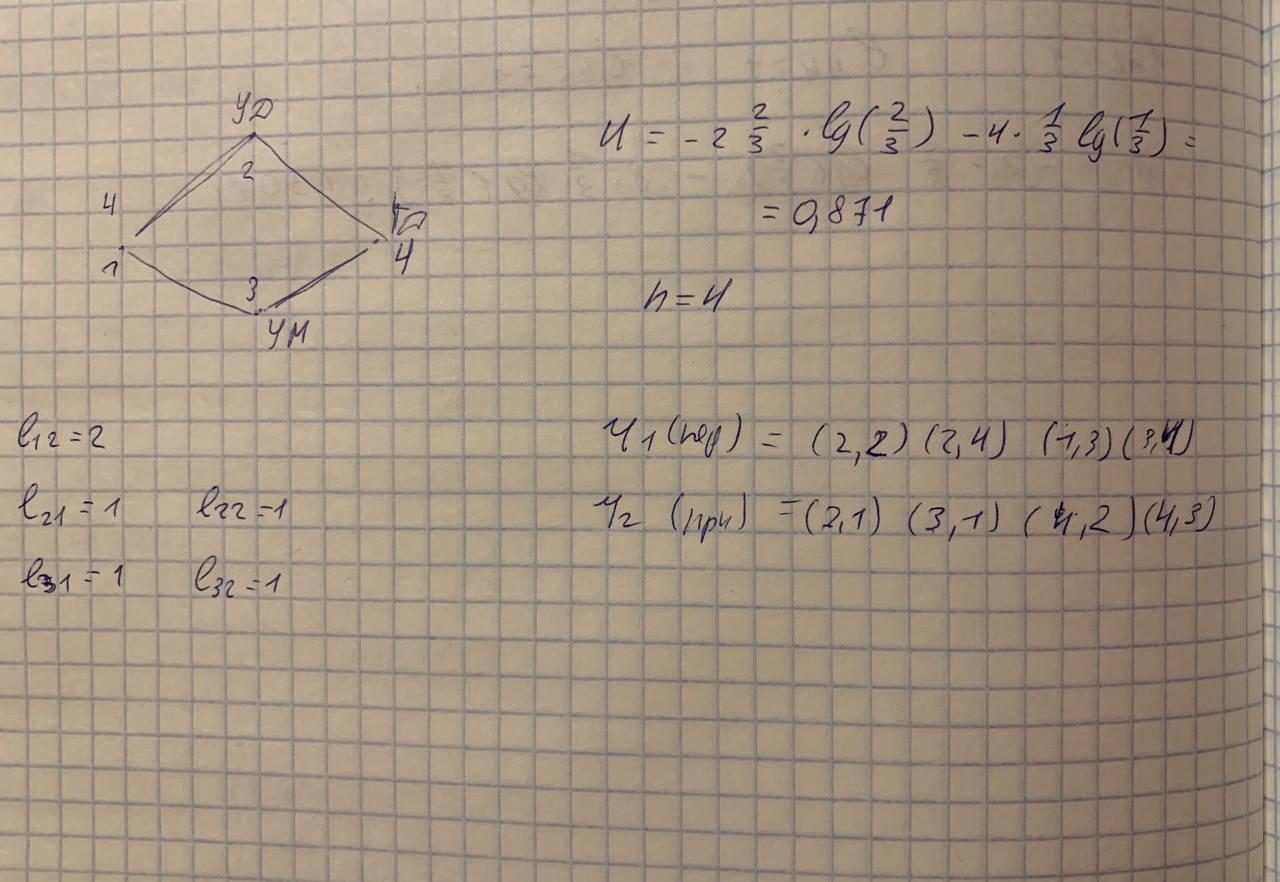 УД
2
4
1
3
УМ
4
H = -2 2/3 · lg(2/3) - 4 · 1/3 lg(1/3) =
= 0,871
n = 4
l12 = 2
l21 = 1 l22 = 1
l31 = 1 l32 = 1
Ч1 (пер) = (2,2) (2,4) (1,3) (3,4)
Ч2 (при) = (2,1) (3,1) (4,2) (4,3)